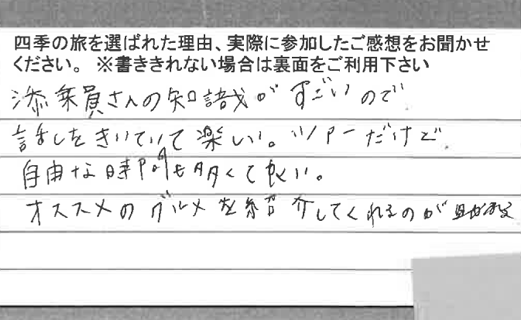 四季の旅を選ばれた理由、実際に参加したご感想をお聞かせ
ください。 ※書ききれない場合は裏面をご利用下さい
添乗員さんの知識がすごいので
話しをきいていて楽しい。ツアーだけど、
自由な時間も多くて良い。
オススメのグルメを紹介してくれるのが助かる